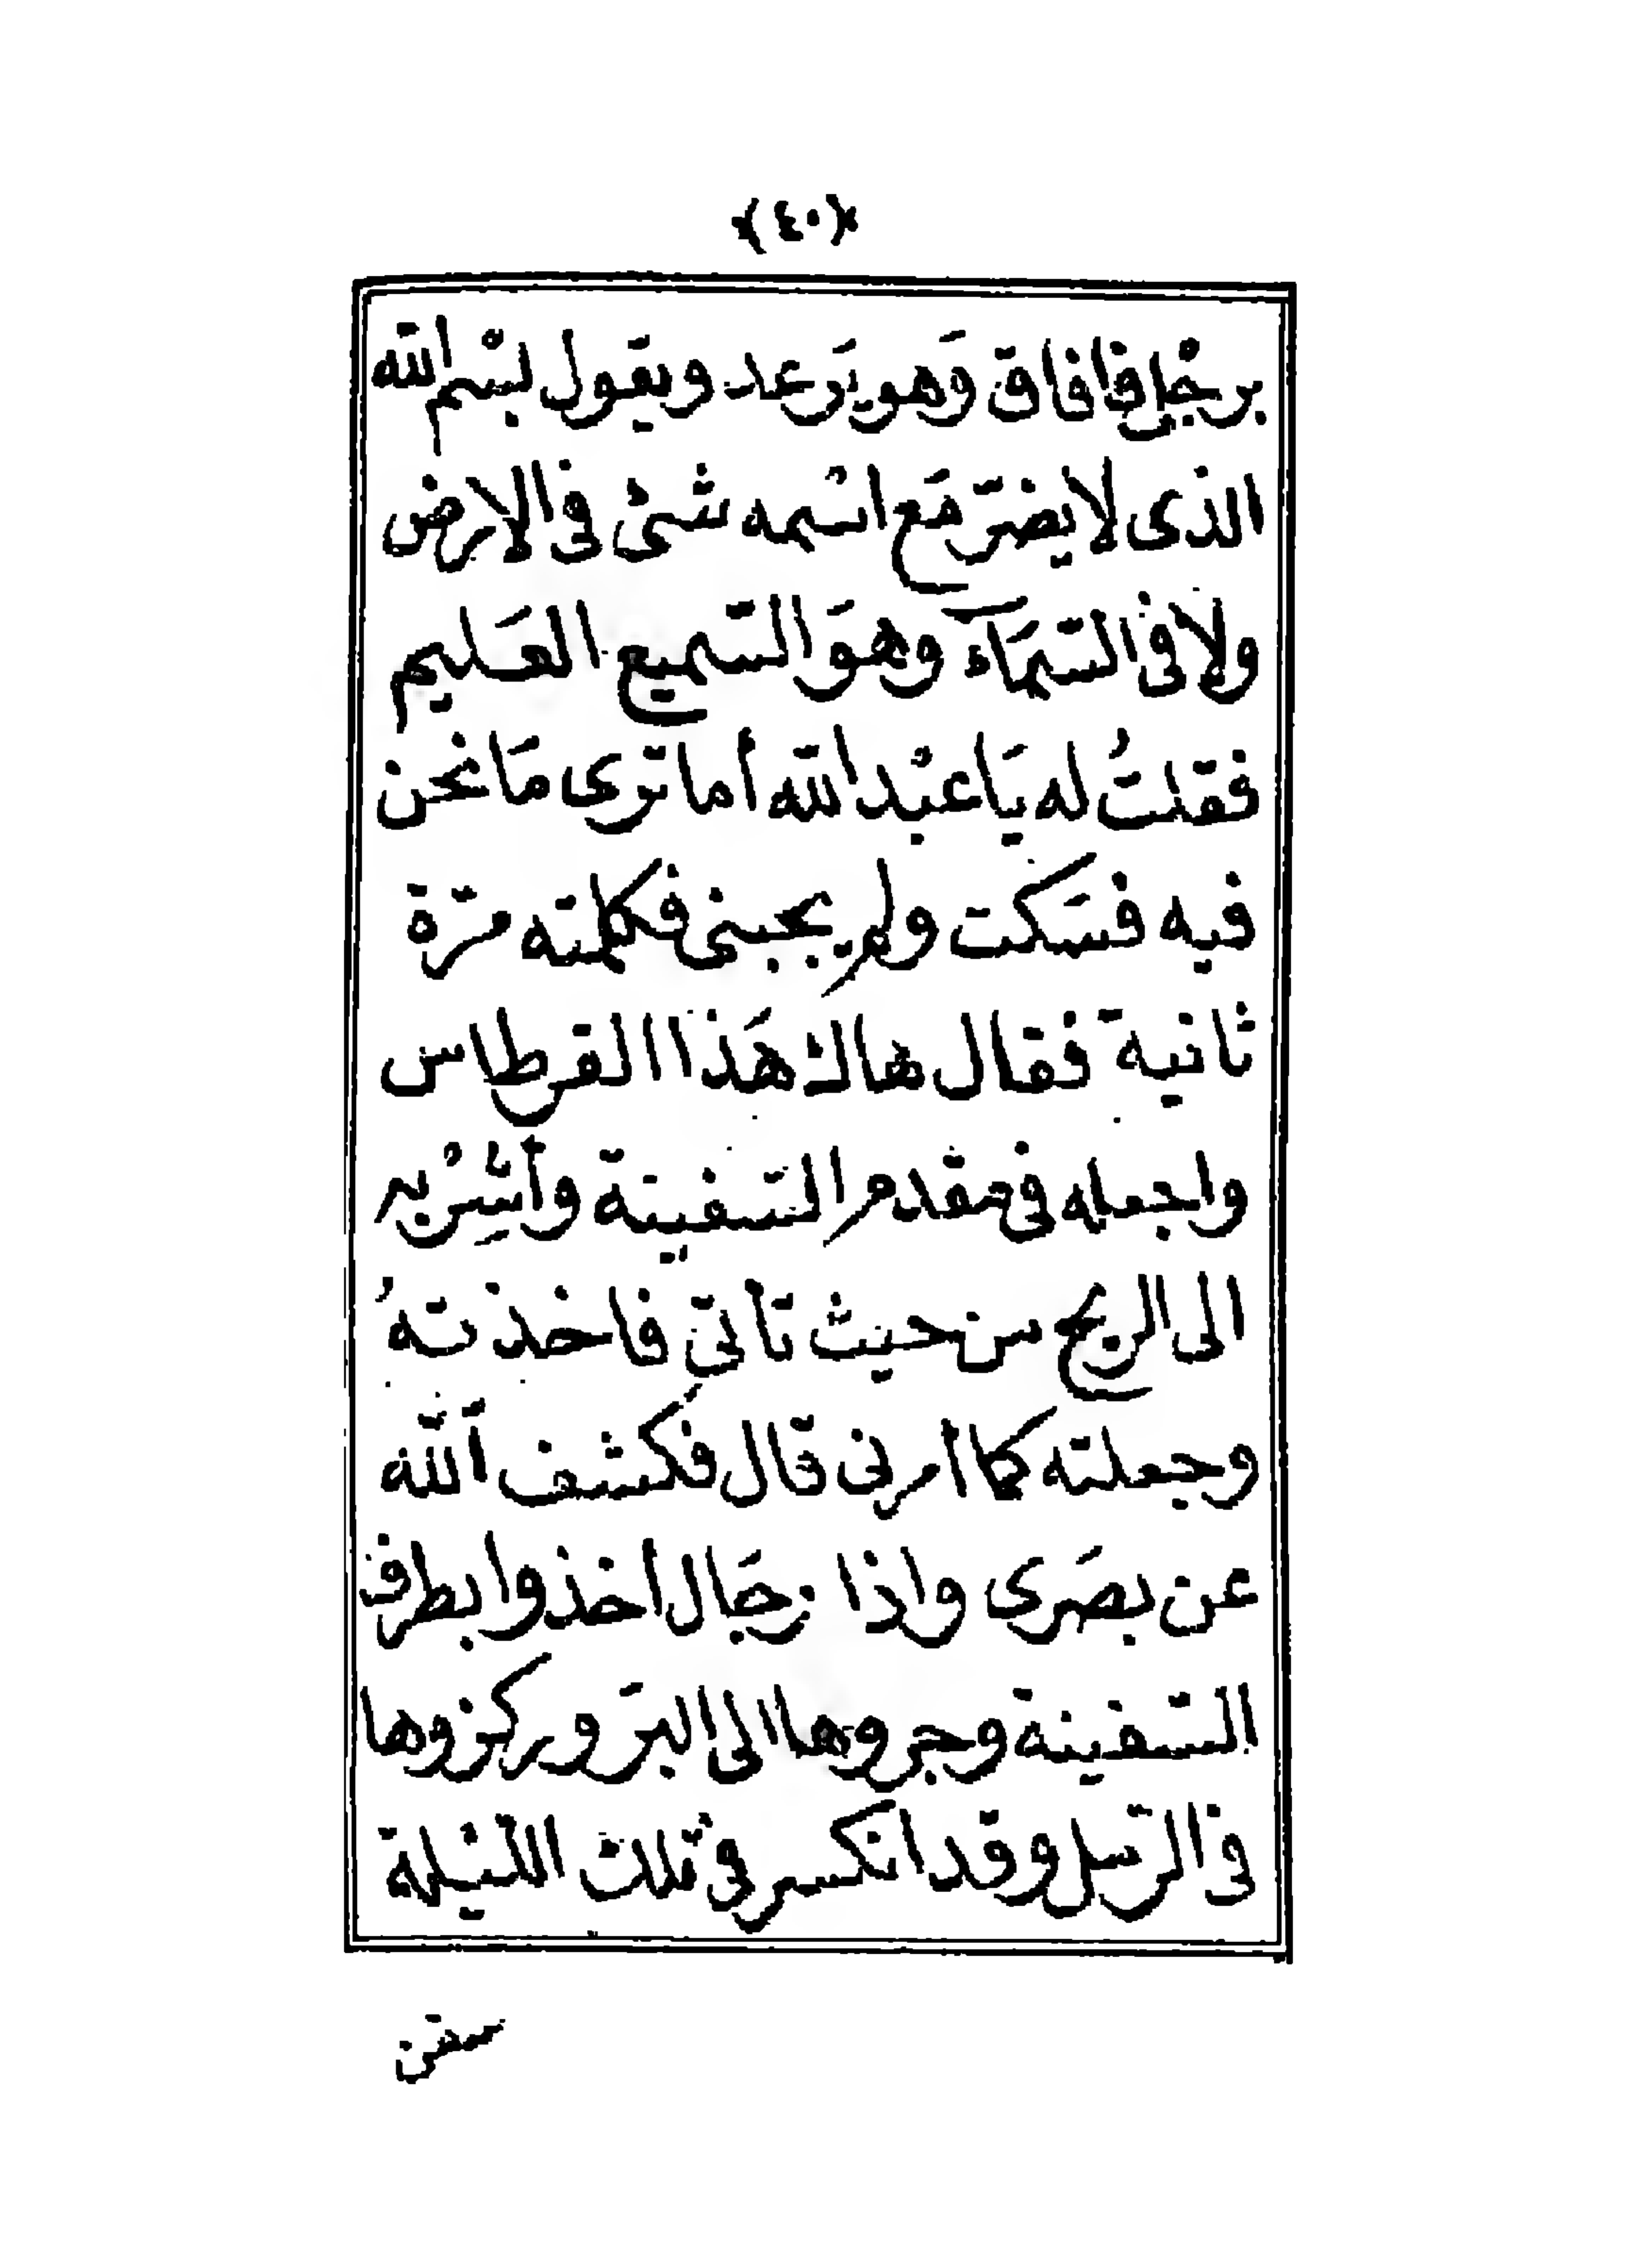 ﴿٤٠﴾
برجْلي فافاق وَهو يَرعد ويقَول بسْم الله
الذى لا يضرّ مَع اسْمه شئ فى الارض
ولا فى السّمَآء وهوَ السّميع العَليم
فقلتُ له يَا عبْد الله أما ترى مَا نحن
فيه فسَكت ولم يجبنى فكلمته مرّة
ثانية فقال هاك هَذا القرطاس
واجعله فى مقدم السّفينة وأَشِرْ به
الى الريح من حيث تأتى فاخذتهُ
وجعلته كما أمرنى قال فكشف اَلله
عن بصَرى واذا رجَال أخذوا بطرف
السّفينة وجروها الى البرّ وركزوها
فى الرّمل وقد انكسر فى تلك اللّيْلة
سفن